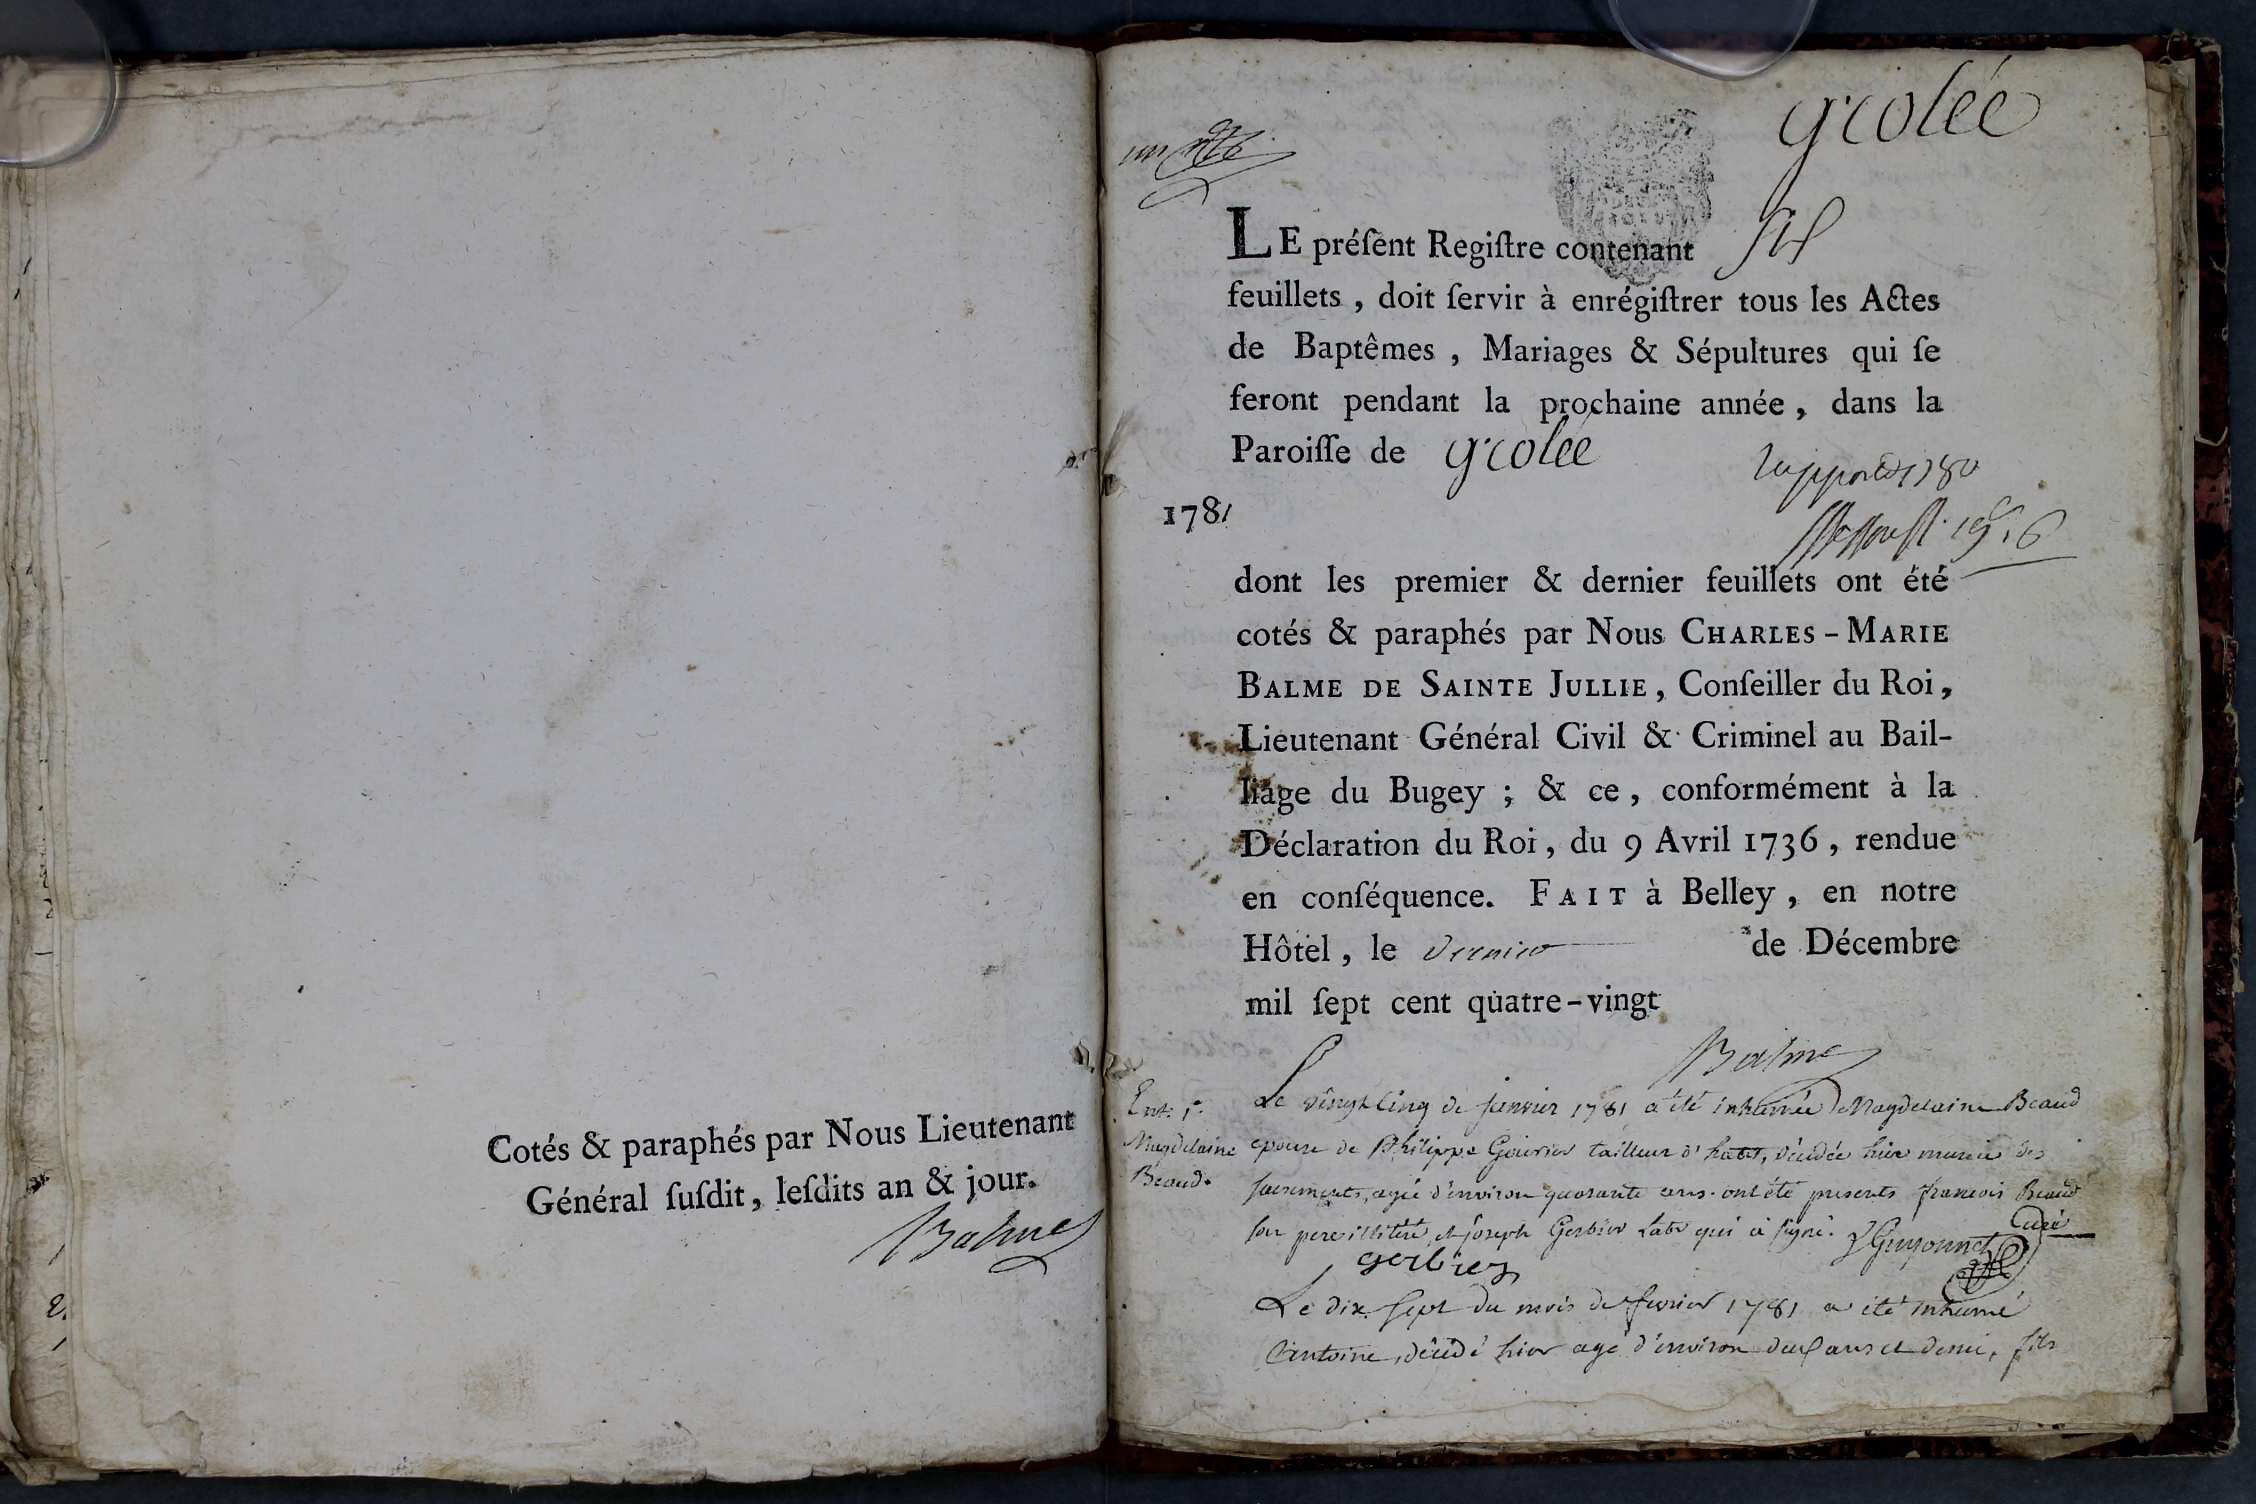 Cotés & paraphés par Nous Lieutenant
Général ſuſdit, leſdits an & jour.
Balme
grolée
un
LE préſent Regiſtre contenant six
feuillets, doit ſervir à enrégiſtrer tous les Actes
de Baptêmes, Mariages & Sépultures qui ſe
feront pendant la prochaine année, dans la
Paroiſſe de grolée
rapporté 1780
1781
dont les premier & dernier feuillets ont été
cotés & paraphés par Nous CHARLES-MARIE
BALME DE SAINTE JULLIE, Conſeiller du Roi,
Lieutenant Général Civil & Criminel au Bail-
liage du Bugey; & ce, conformément à la
Déclaration du Roi, du 9 Avril 1736, rendue
en conſéquence. FAIT à Belley, en notre
Hôtel, le dernier de Décembre
mil ſept cent quatre-vingt
Balme
Ent. 1.
Magdelaine
Beaud.
Le vingt cinq de janvier 1781 a été inhumée Magdelaine Beaud
epouse de Philippe Gourier tailleur d'habit, décédée hier munie des
sacrements, agée d'environ quarante ans. ont été presents francois Beaud
son pere illitéré, et joseph Gerbier lab. qui a signé. Guyonnet Curé
gerbier
Le dix sept du mois de fevrier 1781 a été inhumé
Antoine, décédé hier agé d'environ deux ans et demi, fils